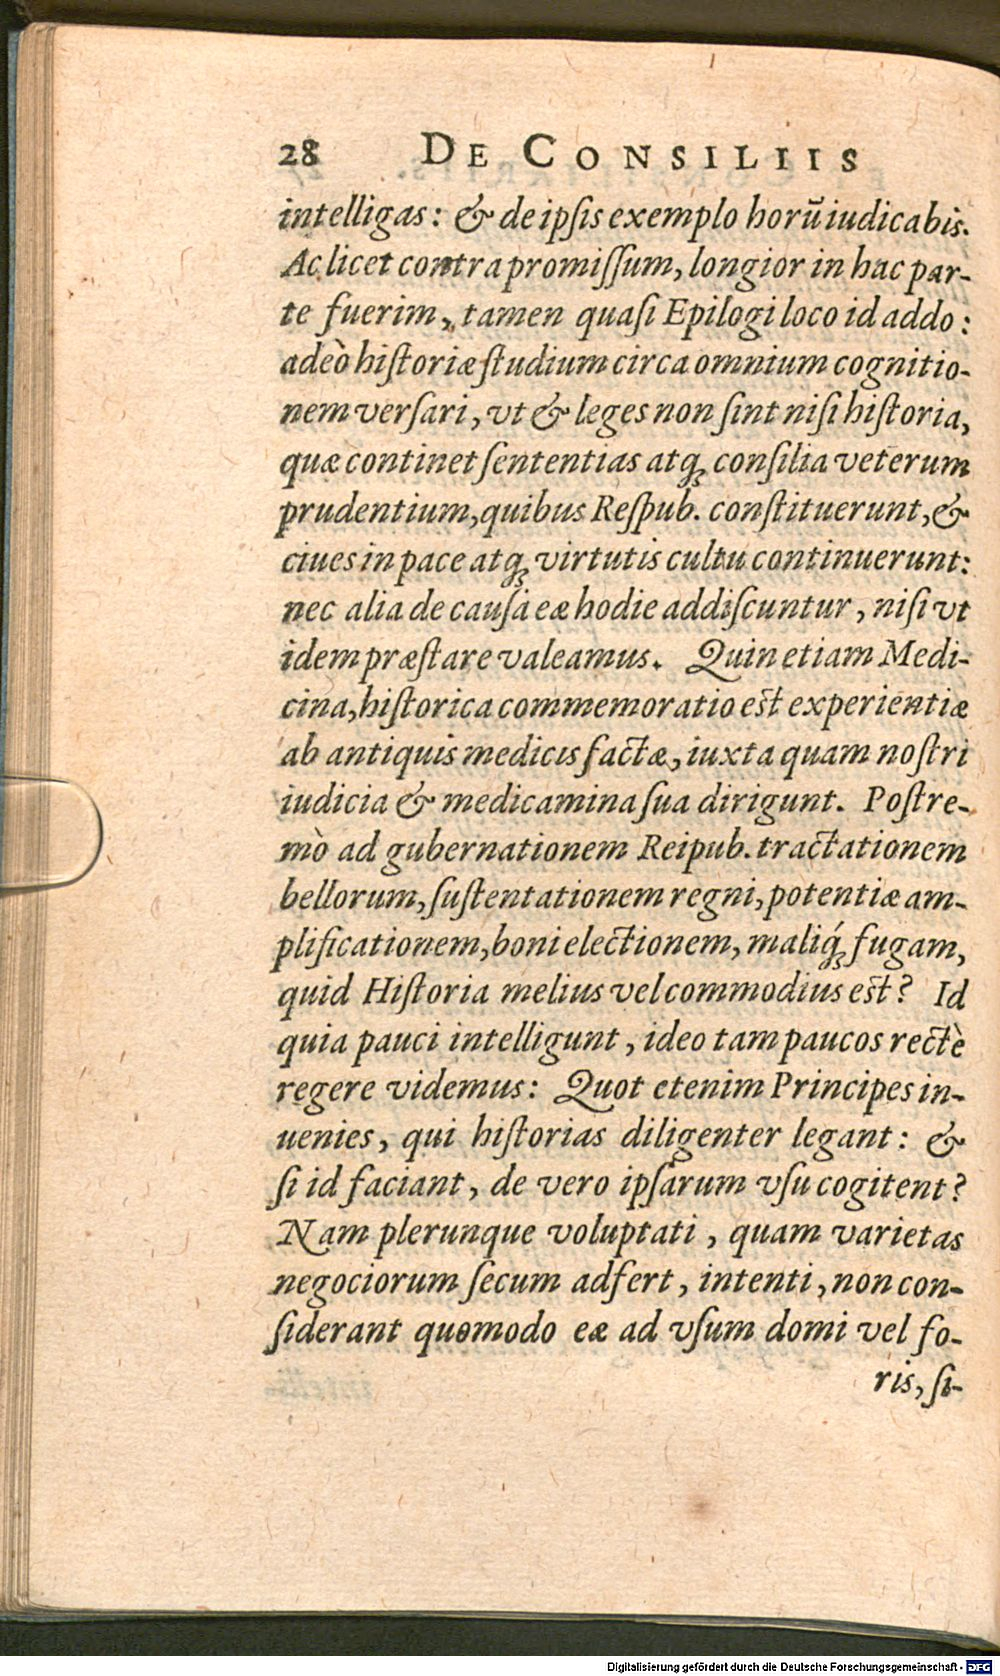 28 DE CONSILIIS
intelligas: & de ipſis exemplo horū iudicabis.
Ac licet contra promiſſum, longior in hac par-
te fuerim, tamen quaſi Epilogi loco id addo:
adeò hiſtoriæ ſtudium circa omnium cognitio-
nem verſari, vt & leges non ſint niſi hiſtoria,
quæ continet ſententias atq; conſilia veterum
prudentium, quibus Reſpub. conſtituerunt, &
ciues in pace atq; virtutis cultu continuerunt:
nec alia de cauſa eæ hodie addiſcuntur, niſi vt
idem præſtare valeamus. Quin etiam Medi-
cina, hiſtorica commemoratio eſt experientiæ
ab antiquis medicis factæ, iuxta quam noſtri
iudicia & medicamina ſua dirigunt. Poſtre-
mò ad gubernationem Reipub. tractationem
bellorum, ſuſtentationem regni, potentiæ am-
plificationem, boni electionem, maliq́; fugam,
quid Hiſtoria melius vel commodius eſt? Id
quia pauci intelligunt, ideo tam paucos rectè
regere videmus: Quot etenim Principes in-
uenies, qui hiſtorias diligenter legant: &
ſi id faciant, de vero ipſarum vſu cogitent?
Nam plerunque voluptati, quam varietas
negociorum ſecum adfert, intenti, non con-
ſiderant quomodo eæ ad vſum domi vel fo-
ris, ſi-
Digitalisierung gefördert durch die Deutsche Forschungsgemeinschaft - DFG